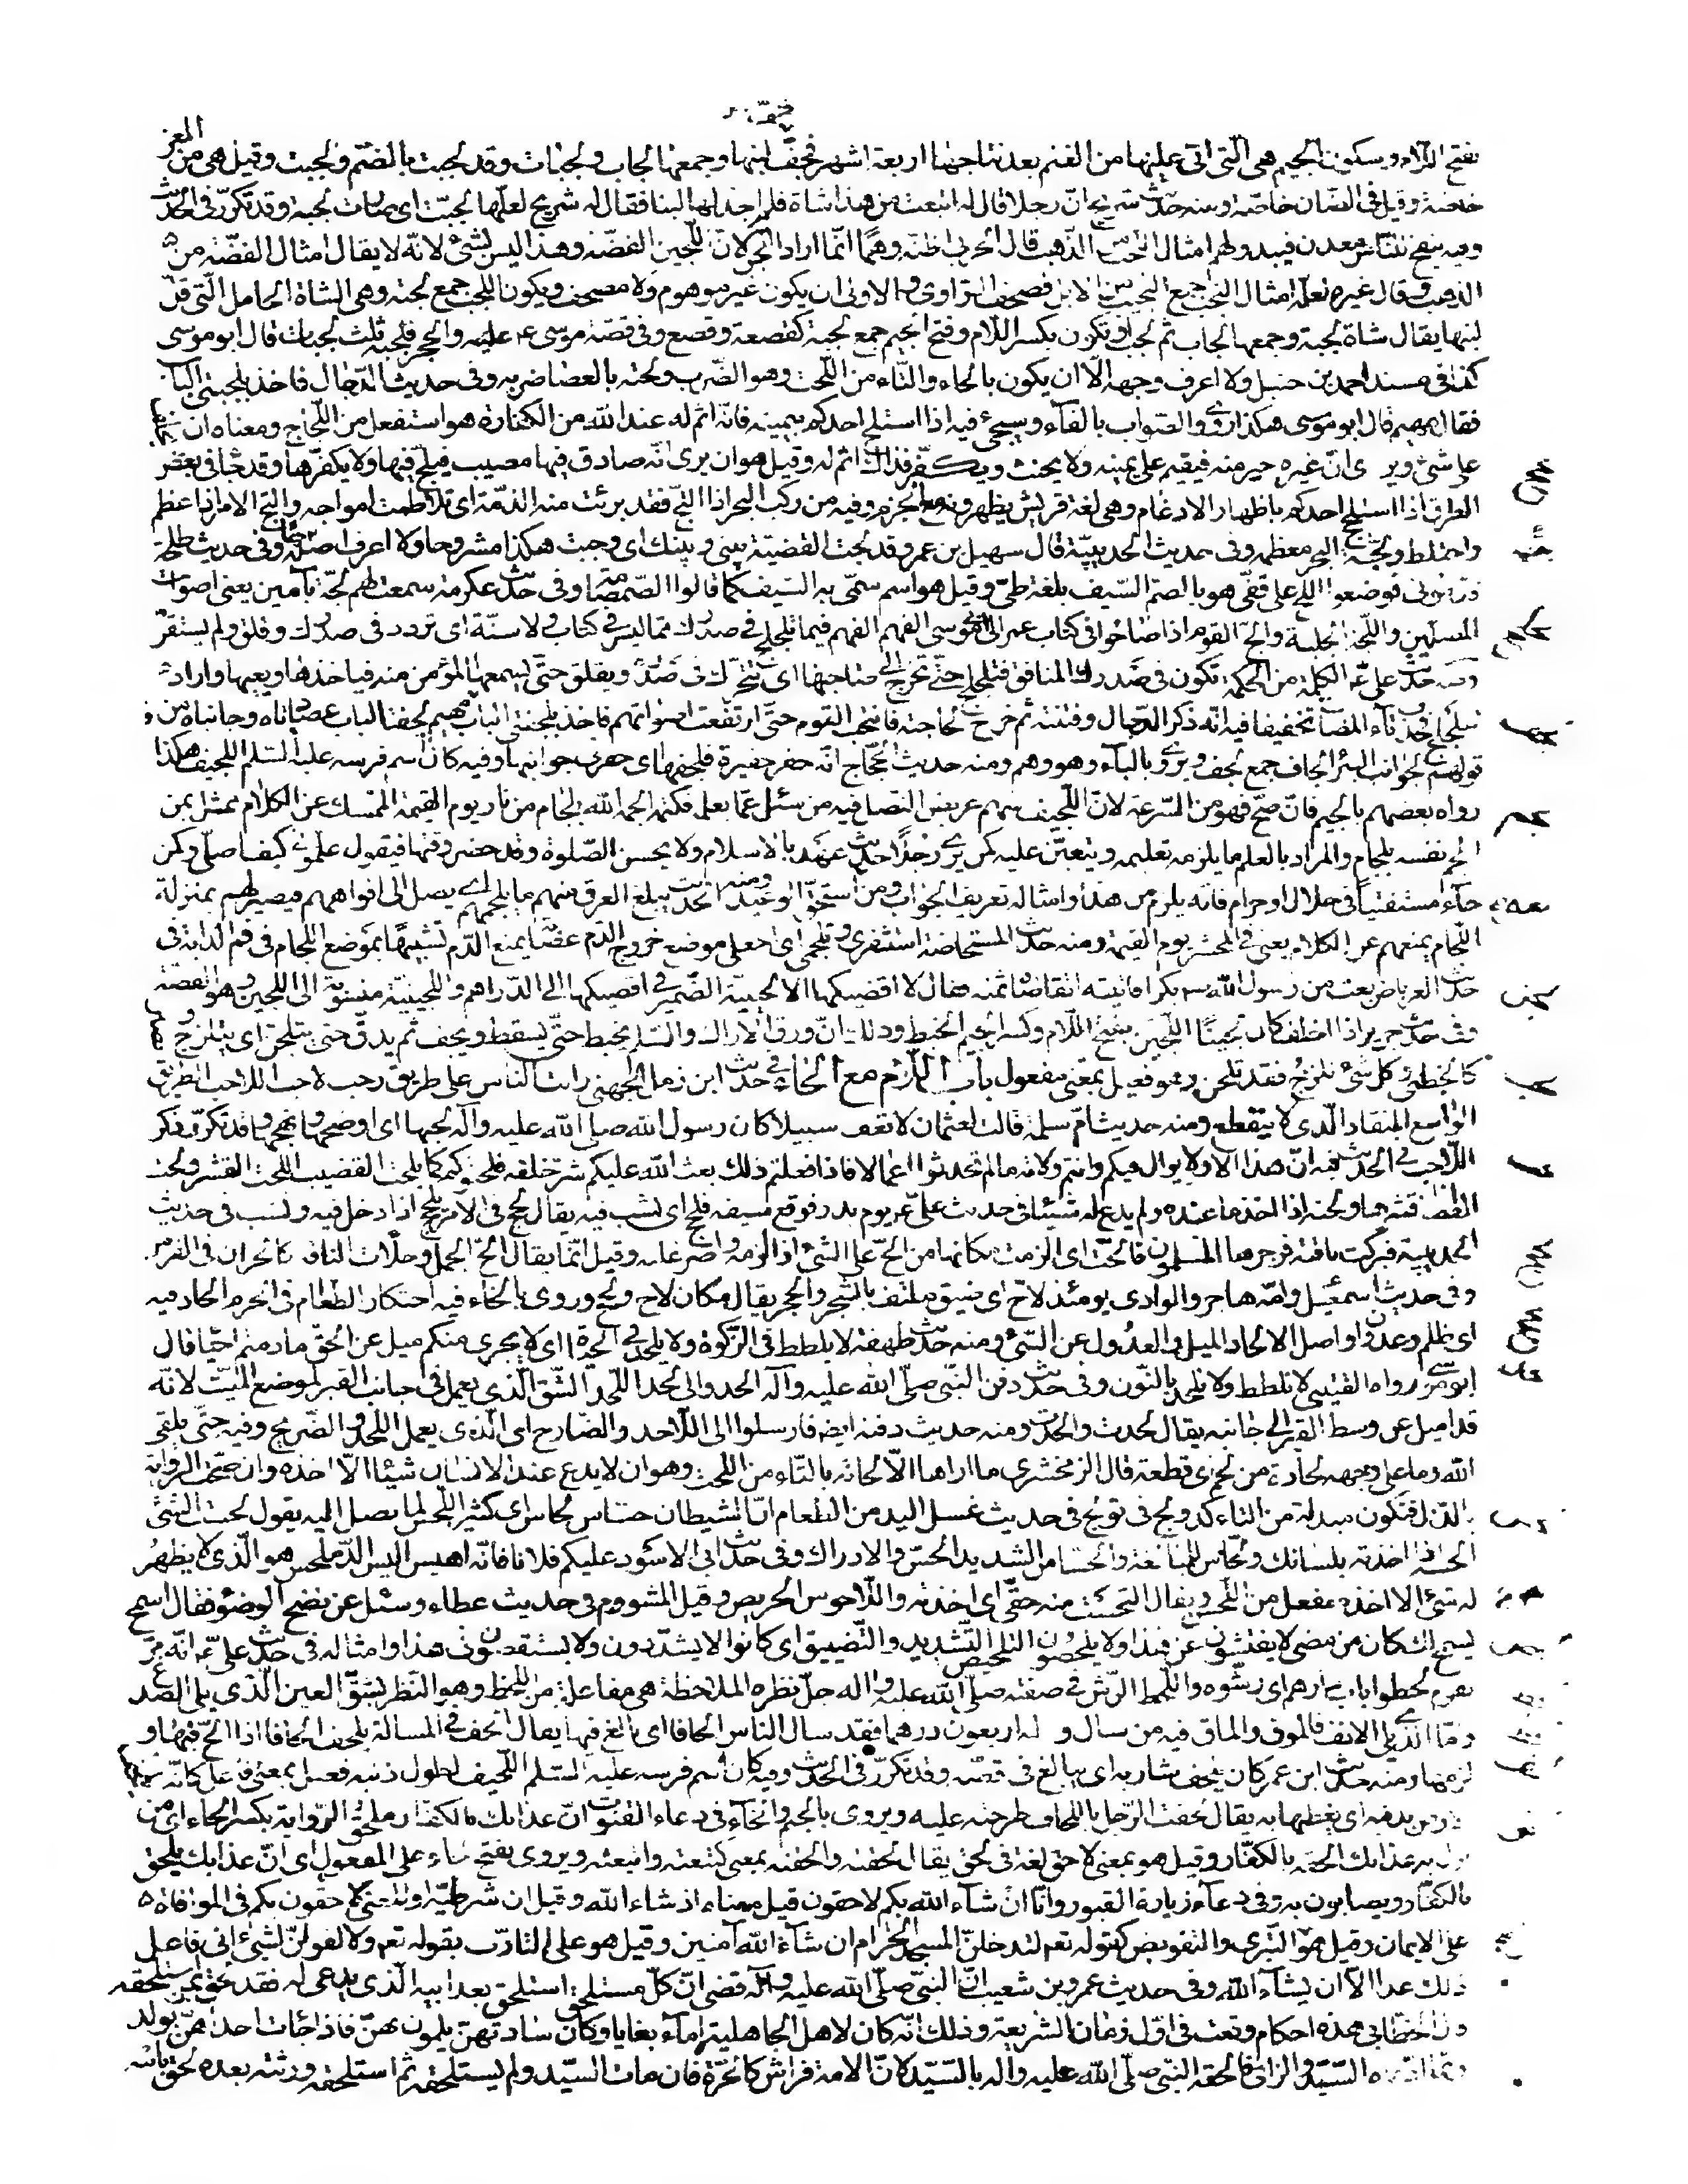 بفتح اللام وسكون الجيم هى الّتى اتى عليها من الغنم بعد نتاجها اربعة اشهر فخفّ لبنها وجمعها لجاب ولجبات وقد لجبت بالضّم ولجبت وقيل هى من المعز
خاصّة وقيل فى الضان خاصّة ومنه حديث شريح انّ رجلا قال له ابتعت من هذا شاة فلم اجد لها لبنا فقال له شريح لعلّها لجّبت اى صارت لجبة وقد تكرّر فى الحديث
وفيه ينفتح للنّاس معدن فيبدو لهم امثال اللجب من الذّهب قال الحربى اظنّه وهمًا انّما اراد اللجن لانّ اللّجين الفضّة وهذا ليس بشئ لانّه لا يقال امثال الفضّة من
الذهب وقال غيره لعلّه امثال النجب جمع النجيب من الابل فصحّف الرّاوى والاولى ان يكون غير موهوم ولا مصحف ويكون اللجب جمع لجبة وهى الشاة الحامل الّتى قلّ
لبنها يقال شاة لجبة وجمعها لجاب ثم لجب او يكون بكسر اللّام وفتح الجيم جمع لجبة كقصعة وقصع وفى قصّة موسى ع والحجر فلجبه ثلث لجبات قال ابو موسى
كذا فى مسند احمد بن حنبل ولا اعرف وجهه الّا ان يكون بالحاء والتّاء من اللّحت وهو الضّرب ولحته بالعصا ضربه وفى حديث الدّجّال فاخذ بلجبتى الباب
فقال مهيم قال ابو موسى هكذا روى والصّواب بالفآء وسيجئ فيه اذا استلجّ احدكم بيمينه فانّه اثم له عند الله من الكفّارة هو استفعل من اللّجاج ومعناه ان يحلف
على شئ ويرى انّ غيره خير منه فيقيم على يمينه ولا يحنث ويكفّر فذلك اثم له وقيل هو ان يرى انّه صادق فيها مصيب فيلجّ فيها ولا يكفّرها وقد جاء فى بعض
الطرق اذا استلجج احدكم باظهار الادغام وهى لغة قريش يظهرونه مع الجزم وفيه من ركب البحر اذا التجّ فقد برئت منه الذّمّة اى تلاطمت امواجه والتجّ الامر اذا عظم
واختلط ولجّة البحر معظمه وفى حديث الحديبيّة قال سهيل بن عمرو قد لجت القضيّة بينى وبينك اى وجبت هكذا مشروحا ولا اعرف اصله وفى حديث طلحة
قدّمونى فوضعوا اللج على قفىّ هو بالضمّ السّيف بلغة طىّ وقيل هو اسم سمّى به السّيف كما قالوا الصّمصامة وفى حديث عكرمة سمعت لهم لجّة بآمين يعنى اصوات
المصلّين واللّجة الجلبة والجّ القوم اذا صاحوا فى كتاب عمر الى ابى موسى الفهم الفهم فيما تلجلج فى صدرك ممّا ليس فى كتاب ولا سنّة اى تردد فى صدرك وقلق ولم يستقرّ
ومنه حديث على ع الكلمة من الحكمة تكون فى صدر المنافق فتلجلج حتّى تخرج الى صاحبها اى تتحرّك فى صدره ويقلق حتّى يسمعها المؤمن منه فياخذها ويعيها واراد
تتلجلج فحذف تآء المضارعة تخفيفا فيه انّه ذكر الدّجال وفتنته ثم خرج لحاجته فانتحب القوم حتّى ارتفعت اصواتهم فاخذ بلجفتى الباب فقال مهيم لجفتا الباب عضادتاه وجانباه من
قولهم لجوانب البئر الجاف جمع لجف ويروى بالبآء وهو وهم ومنه حديث الحجّاج انّه حفر حفيرة فلجفها اى حفر فى جوانبها وفيه كان اسم فرسه عليه السّلم اللجيف هكذا
رواه بعضهم بالجيم فان صحّ فهو من السّرعة لانّ اللّجيف سهم عريض النصل فيه من سئل عمّا يعلمه فكتمه الجمه الله بلجام من نار يوم القيمة الممسك عن الكلام ممثّل بمن
الجم نفسه بلجام والمراد بالعلم ما يلزمه تعليمه ويتعيّن عليه كمن يرى رجلاً حديث عهد بالاسلام ولا يحسن الصّلوة وقد حضر وقتها فيقول علّمونى كيف اصلّى وكمن
جآء مستفتياً فى حلال او حرام فانّه يلزم من هذا وامثاله تعريف الجواب ومن منعه استحقّ الوعيد ومنه الحديث يبلغ العرق منهم ما يلجمهم اى يصل الى افواههم فيصير لهم بمنزلة
اللّجام يمنعهم عن الكلام يعنى فى المحشر يوم القيمة ومنه حديث المستحاضة استثفرى وتلجّمى اى اجعلى موضع خروج الدم عصابة يمنع الدّم تشبيهًا بموضع اللجام فى فم الدابّة فى
حديث العرباض بعت من رسول الله ص بكرا فاتيته اتقاضاه ثمنه فقال لا اقضيكها الا لجينيّة الضّمير فى اقضيكها الى الدّراهم واللّجينيّة منسوبة الى اللجين وهو الفضّة
وفى حديث جرير اذا اخلف كان لجينًا اللّجين بفتح اللّام وكسر الجيم الخبط وذلك انّ ورق الاراك والسّلم يخبط حتّى يسقط ويجف ثم يدقّ حتى يتلجّن اى يتلزج ويصير
كالخطمى وكلّ شئ تلزج فقد تلجّن وهو فعيل بمعنى مفعول باب اللّام مع الحاء فى حديث ابن زمل الجهنى رايت الناس على طريق رحب لاحب اللّاحب الطريق
الواسع المنقاد الّذى لا ينقطع ومنه حديث امّ سلمة قالت لعثمان لا تعف سبيلا كان رسول الله صلى الله عليه وآله لحبها اى اوضحها ونهجها وقد تكرّر ذكر
اللّاحب فى الحديث فيه انّ هذا الامر لا يزال فيكم وانتم ولاته ما لم تحدثوا اعمالا فاذا فعلتم ذلك بعث الله عليكم شرّ خلقه فلحتوكم كما يلحت القضيب اللّحت القشر ولحت
العصا قشرها ولحته اذا اخذ ما عنده ولم يدع له شيئا فى حديث علىّ ع يوم بدر فوقع سيفه فلحج اى نشب فيه يقال لحج فى الامر يلحج اذا دخل فيه ونشب فى حديث
الحديبية فبركت ناقته فزجرها المسلمون فالحّت اى لزمت مكانها من الحّ على الشئ اذا لزمه واصرّ عليه وقيل انّما يقال الحّ الجمل وخلأت الناقة كالحران فى الفرس
وفى حديث اسمعيل وامّه هاجر والوادى يومئذ لاحّ اى ضيق ملتف بالشّجر والحجر يقال مكان لاح ولحح وروى بالخاء فيه احتكار الطعام فى الحرم الحاد فيه
اى ظلم وعدوان واصل الالحاد الميل والعدول عن الشّئ ومنه حديث طهفة لا يلطط فى الزّكوة ولا يلحد فى الحيوة اى لا يجرى منكم ميل عن الحقّ ما دمتم احيّا قال
ابو موسى رواه القتيبى لا تلطط ولا تلحد بالنّون وفى حديث دفن النّبى صلّى الله عليه وآله الحدوا لى لحدا اللّحد الشّق الّذى يعمل فى جانب القبر لموضع الميّت لانّه
قد اميل عن وسط القبر الى جانبه يقال لحدت والحدت ومنه حديث دفنه ايضا فارسلوا الى اللّاحد والضّارح اى الّذى يعمل اللّحد والضّريح وفيه حتّى يلقى
الله وما على وجهه لحادة من لحم اى قطعة قال الزمخشرى ما اراها الّا لحاتة بالتّاء من اللحت وهو ان لا يدع عند الانسان شيئا الّا اخذه وان صحّت الرواية
بالدّال فتكون مبدلة من التاء كدولج فى تولج فى حديث غسل اليد من الطعام انّ الشيطان حسّاس لحّاس اى كثير اللّحس لما يصل اليه يقول لحست الشئ
الحسه اذا اخذته بلسانك ولحّاس للمبالغة والحسّاس الشديد الحسّ والادراك وفى حديث ابى الاسود عليكم فلانا فانّه اهيس اليس الدّ ملحس هو الّذى لا يظهر
له شئ الا اخذه مفعل من اللّحس ويقال التحست منه حقّى اى اخذته واللّاحوس الحريص وقيل المشووم فى حديث عطاء وسئل عن نضح الوضوء فقال اسمح
يسمح لك كان من مضى لا يفتّشون عن هذا ولا يلحصون التلحيص التّشديد والتّضييق اى كانوا لا يشدّدون ولا يستقصون فى هذا وامثاله فى حديث علىّ ع انّه مرّ
بقوم لحطوا باب دارهم اى رشّوه واللّحط الرّش فى صفته صلّى الله عليه واله جلّ نظره الملاحظة هى مفاعلة من اللحظ وهو النّظر بشقّ العين الّذى يلى الصّدغ
وامّا الّذى يلى الانف فالموق والماق فيه من سال وله اربعون درهما فقد سال الناس الحافا اى بالغ فيها يقال الحف فى المسالة يلحف الحافا اذا الحّ فيها و
لزمها ومنه حديث ابن عمر كان يلحف شاربه اى يبالغ فى قصّه وقد تكرّر فى الحديث وفيه كان اسم فرسه عليه السّلم اللّحيف لطول ذنبه فعيل بمعنى فاعل كانّه يلحف
الارض بذنبه اى يغطيها به يقال لحفت الرّجل باللّحاف طرحته عليه ويروى بالجيم والخاء فى دعاء القنوت انّ عذابك بالكفّار ملحق الرّواية بكسر الحاء اى من
نزل به عذابك الحقه بالكفّار وقيل هو بمعنى لاحق لغة فى لحق يقال لحقته والحقته بمعنى كتبعته واتبعته ويروى بفتح الحاء على المفعول اى انّ عذابك يلحق
بالكفّار ويصابون به وفى دعآء زيارة القبور وانّا ان شآء الله بكم لاحقون قيل معناه اذ شاء الله وقيل ان شرطيّة والمعنى لاحقون بكم فى الموافاة
على الايمان وقيل هو التّبرّى والتفويض كقوله تعم لتدخلنّ المسجد الحرام ان شآء الله آمنين وقيل هو على التادّب بقوله تعم ولا تقولنّ لشئ انى فاعل
ذلك غدا الّا ان يشآء الله وفى حديث عمرو بن شعيب انّ النبىّ صلّى الله عليه وآله قضى انّ كلّ مستلحق استلحق بعد ابيه الّذى يدعى له فقد لحق بمن استلحقه
قال الخطّابى هذه احكام وقعت فى اوّل زمان الشريعة وذلك انّه كان لاهل الجاهلية امآء بغايا وكان سادتهنّ يلمّون بهنّ فاذا جائت احداهنّ بولد
ربّما ادّعاه السّيّد والزانى فالحقه النبّى صلّى الله عليه واله بالسّيّد لانّ الامة فراش كالحرّة فان مات السيّد ولم يستلحقه ثم استلحقه ورثته بعده لحق بابيه